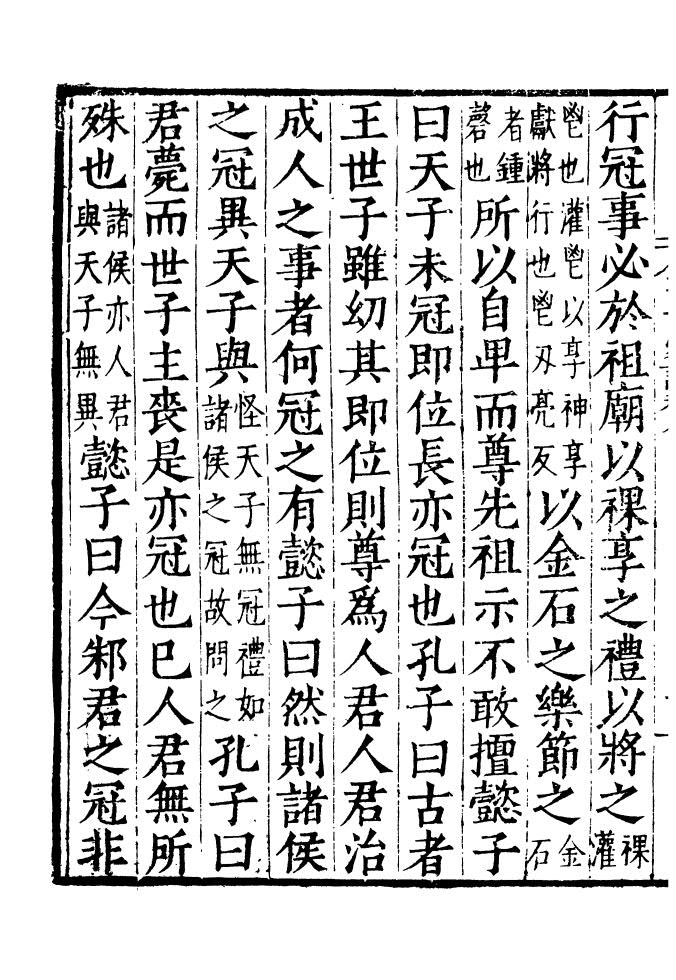 行冠事必於祖廟以裸享之禮以將之裸灌
鬯也灌鬯以享神享獻將行也鬯丑亮反以金石之樂節之金石
者鍾磬也所以自卑而尊先祖示不敢擅懿子
曰天子未冠即位長亦冠也孔子曰古者
王世子雖幼其即位則尊爲人君人君治
成人之事者何冠之有懿子曰然則諸侯
之冠異天子與怪天子無冠禮如諸侯之冠故問之孔子曰
君薨而世子主喪是亦冠也已人君無所
殊也諸侯亦人君與天子無異懿子曰今邾君之冠非